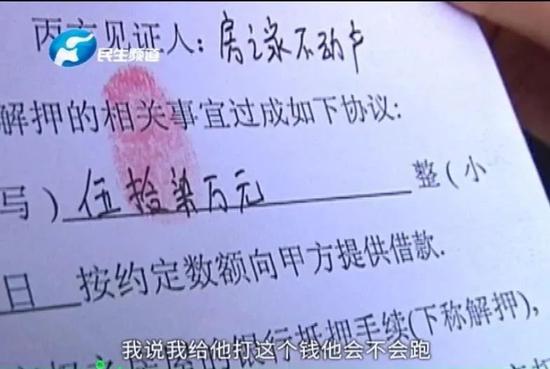 民生频道
丙方见证人：房之家不动产
解押的相关事宜过成如下协议:
写）伍拾柒万元 整（小
日 按约定数额向甲方提供借款.
银行抵押手续(下称解押),
我说我给他打这个钱他会不会跑